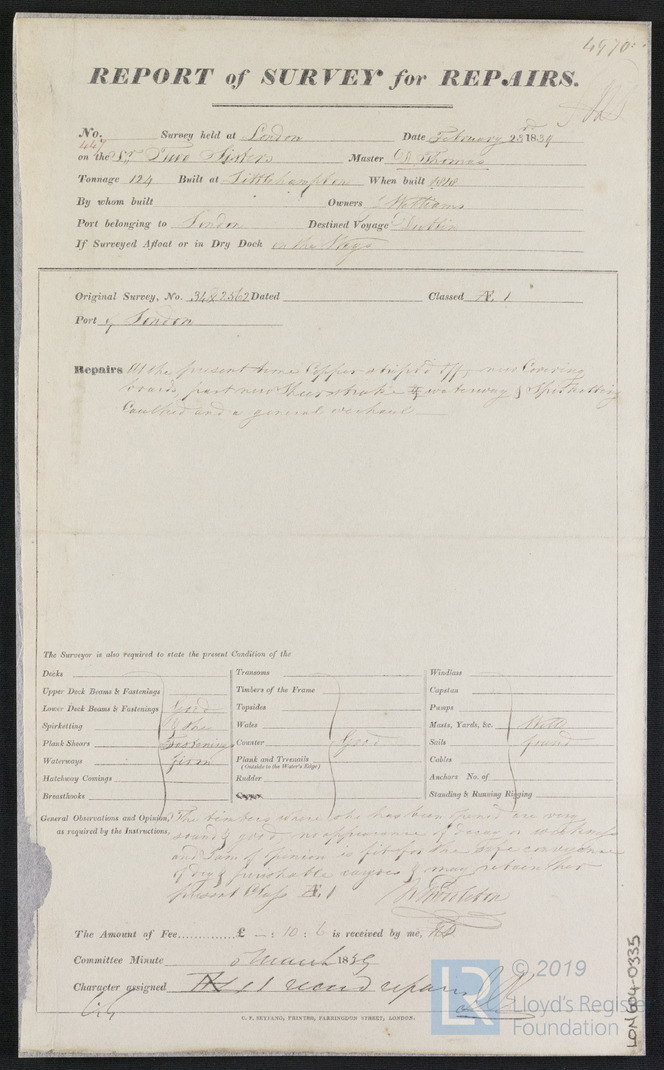 4970
REPORT of SURVEY for REPAIRS.
No. 447 Survey held at London Date February 23rd 1839
on the Two Sisters Master D. Thomas
Tonnage 124 Built at Littlehampton When built 1818
By whom built Owners Matthews
Port belonging to London Destined Voyage
If Surveyed Afloat or in Dry Dock on the Ways
Original Survey, No. 34 & 2362 Dated Classed Æ 1
Port of London
Repairs At the present time Copper stript off, new Covering
board, part new Sheerstrake & waterway & Spirketting
Caulked and a general overhaul
The Surveyor is also required to state the present Condition of the
Decks
Upper Deck Beams & Fastenings
Lower Deck Beams & Fastenings
Spirketting
Plank Shears
Waterways
Hatchway Comings
Breasthooks
Good
& the
Fastenings
firm
Transoms
Timbers of the Frame
Topsides
Wales
Counter
Plank and Treenails
(Outside to the Water's Edge)
Rudder
Good
Windlass
Capstan
Pumps
Masts, Yards, &c.
Sails
Cables
Anchors No. of
Standing & Running Rigging
Well
found
General Observations and Opinion, as required by the Instructions,
The timbers where she has been opened are very
sound & good no appearance of decay or weakness
and I am of opinion is fit for the safe conveyance
of dry & perishable cargoes & may retain her
present Class Æ 1
The Amount of Fee............. £ — : 10 : 6 is received by me,
Committee Minute 5 March 1839
Character assigned Æ 1 record repairs
C. F. SEYFANG, PRINTER, FARRINGDON STREET, LONDON.
LR
© 2019
Lloyd's Register
Foundation
LON604-0335